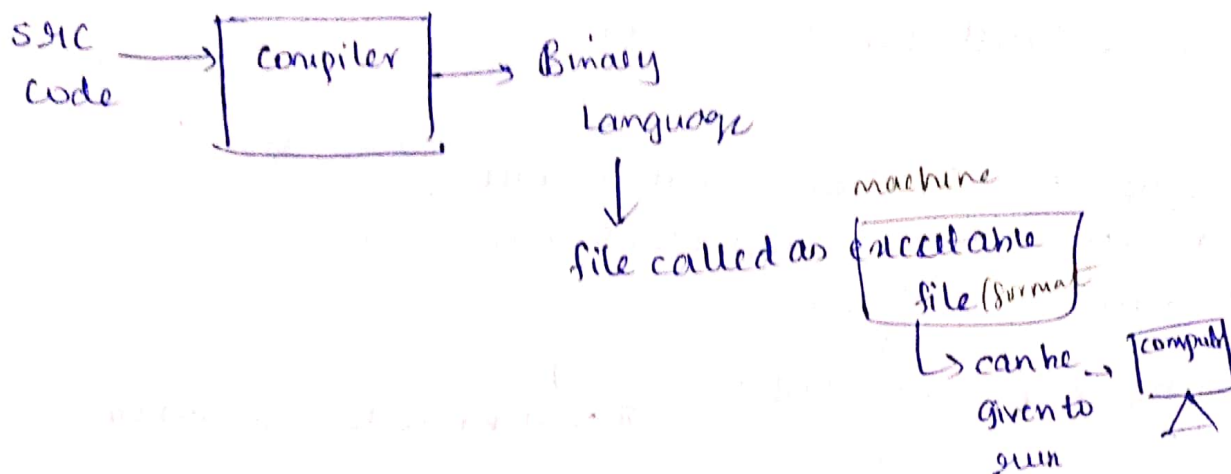 src
code
compiler
Binary
language
machine
file called as executable
file (format
can be
given to
run
computer